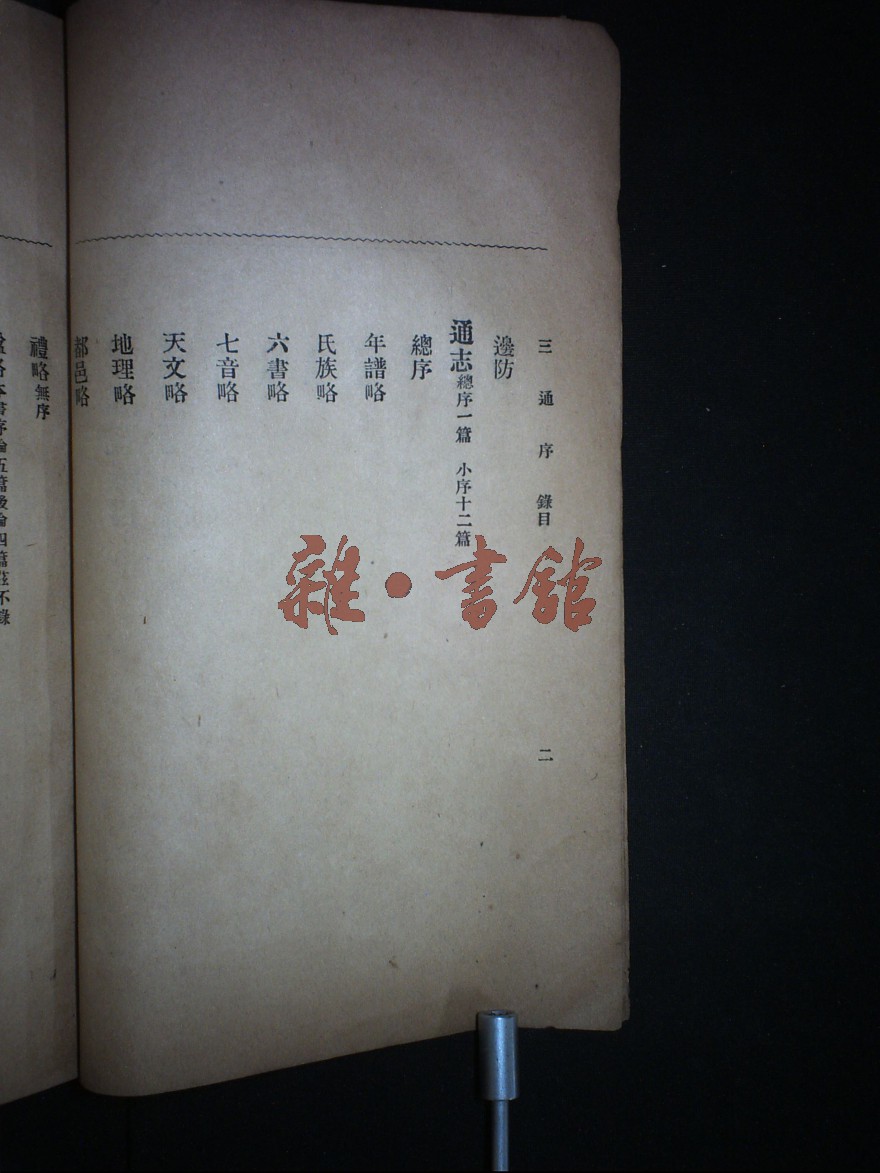 三通序 錄目 二
邊防
通志總序一篇 小序十二篇
總序
年譜略
氏族略
六書略
七音略
天文略
地理略
都邑略
禮略無序
略本書序論五篇後論四篇茲不錄
雜·書館